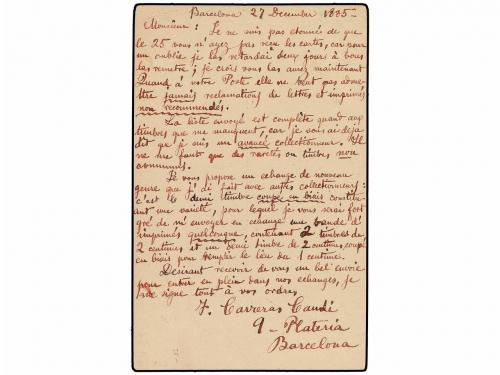 Barcelona 27 December 1885-
Monsieur: Je ne suis pas etonné de que
le 25 vous n'ayez pas reçu les cartes, car pour
un oublie je les retardai deux jours à vous
les remetre; je crois vous les aurez maintenant
Quand à votre Poste elle ne veut pas adme-
ttre jamais reclamations de lettres et imprimés
non recommendés.
La liste envoyé est complète quand aux
timbres que me manquent, car je vous ai deja
dit que je suis un avancé collectionneur. Il
ne me faut que des raretés ou timbres non
communs.
Je vous propose un echange de nouveau
genre que j'ai fait avec autres collectionneurs:
c'est le demi timbre coupé en biais constitu-
ant une varieté, pour lequel je vous serais fort
gré de m'envoyer en echange une bande d'
imprimés quelconque, contenant 2 timbres de
2 centimes et un demi timbre de 2 centimes, coupé
en biais pour remplir le lieu du 1 centime.
Desirant recevoir de vous un bel envoi
pour entrer en plein dans nos echanges, je
me signe tout à vos ordres,
F. Carreras Candi
9 - Plateria
Barcelona